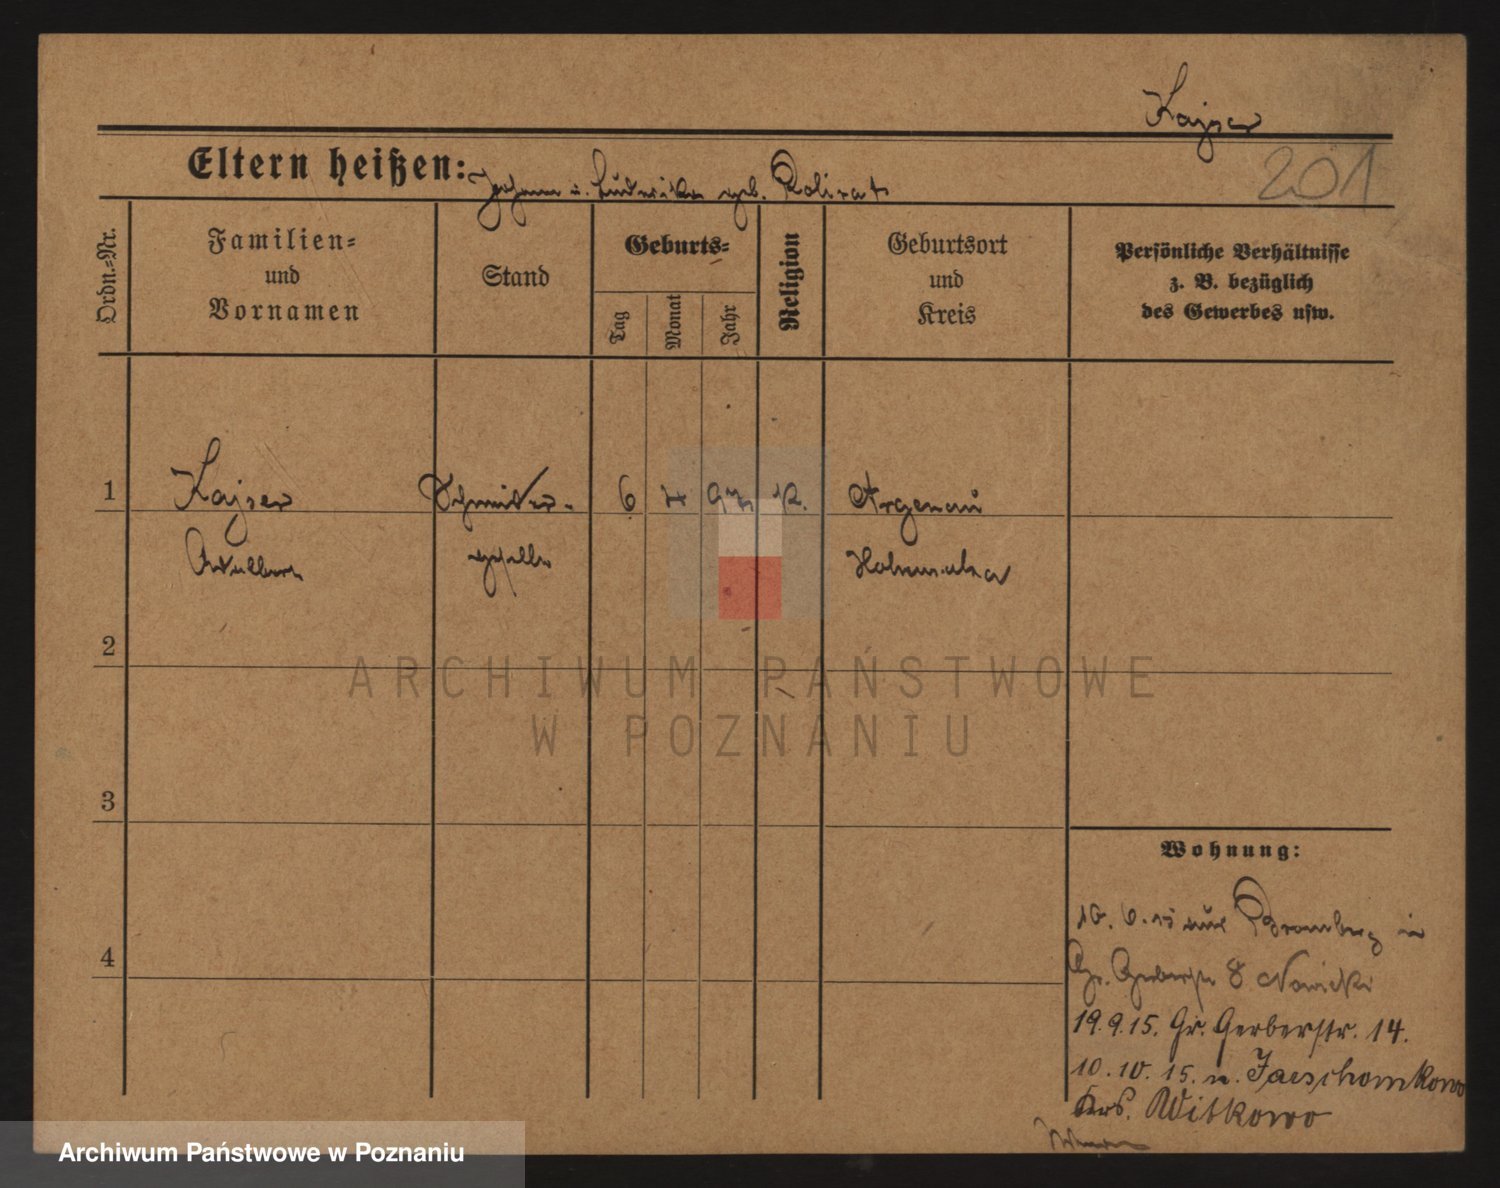 Kajser
201
Eltern heißen: Johann u. Ludwika geb.
Ordn.=Nr.
Familien=
und
Vornamen
Stand
Geburts=
Tag
Monat
Jahr
Religion
Geburtsort
und
Kreis
Persönliche Verhältnisse
z. B. bezüglich
des Gewerbes usw.
1 Kajser Schneider- 6 4 97 K. Argenau
Adalbert geselle Hohensalza
2
ARCHIWUM PAŃSTWOWE
W POZNANIU
3
Wohnung:
10. 6. 15 aus Bromberg in
Gr. Gerberstr 8 Nowicki
4
19. 9. 15. Gr. Gerberstr. 14.
10. 10. 15. n. Jaeschomkowo
Krs. Witkowo
Archiwum Państwowe w Poznaniu